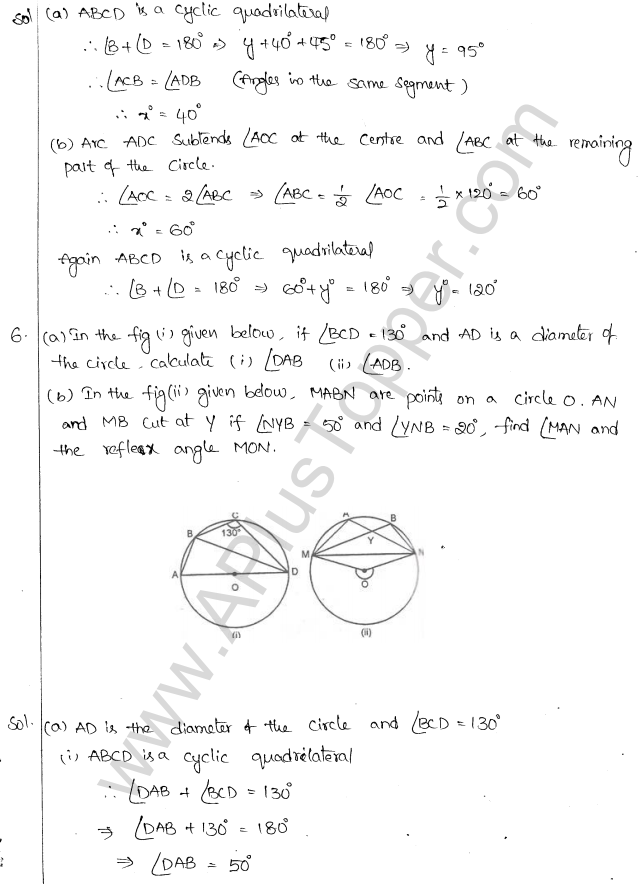 Sol (a) ABCD is a cyclic quadrilateral
∴ ∠B + ∠D = 180° ⇒ y + 40° + 45° = 180° ⇒ y = 95°
∴ ∠ACB = ∠ADB (Angles in the same segment)
∴ x° = 40°
(b) Arc ADC subtends ∠AOC at the centre and ∠ABC at the remaining
part of the circle.
∴ ∠AOC = 2∠ABC ⇒ ∠ABC = 1/2 ∠AOC = 1/2 × 120° = 60°
∴ x° = 60°
Again ABCD is a cyclic quadrilateral
∴ ∠B + ∠D = 180° ⇒ 60° + y° = 180° ⇒ y° = 120°
6. (a) In the fig (i) given below, if ∠BCD = 130° and AD is a diameter of
the circle, calculate (i) ∠DAB (ii) ∠ADB.
(b) In the fig (ii) given below, MABN are points on a circle O. AN
and MB cut at Y if ∠NYB = 50° and ∠YNB = 20°, find ∠MAN and
the reflex angle MON.
C
130°
B
A
D
O
(i)
A
B
Y
M
N
O
(ii)
Sol. (a) AD is the diameter of the circle and ∠BCD = 130°
(i) ABCD is a cyclic quadrilateral
∴ ∠DAB + ∠BCD = 130°
⇒ ∠DAB + 130° = 180°
⇒ ∠DAB = 50°
www.APlusTopper.com